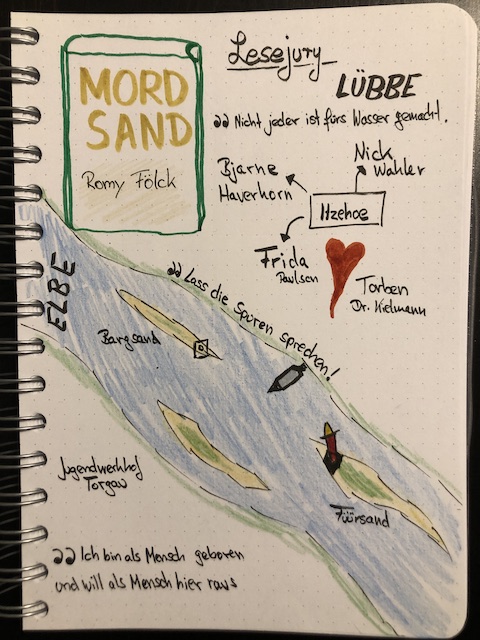 Lesejury
LÜBBE
MORD
SAND
Romy Fölck
"Nicht jeder ist fürs Wasser gemacht.
Bjarne
Haverkorn
Nick
Wahler
Itzehoe
Frida
Paulsen
Torben
Dr. Kielmann
ELBE
"Lass die Spuren sprechen!
Bargsand
Jugendwerkhof
Torgau
Füürsand
"Ich bin als Mensch geboren
und will als Mensch hier raus